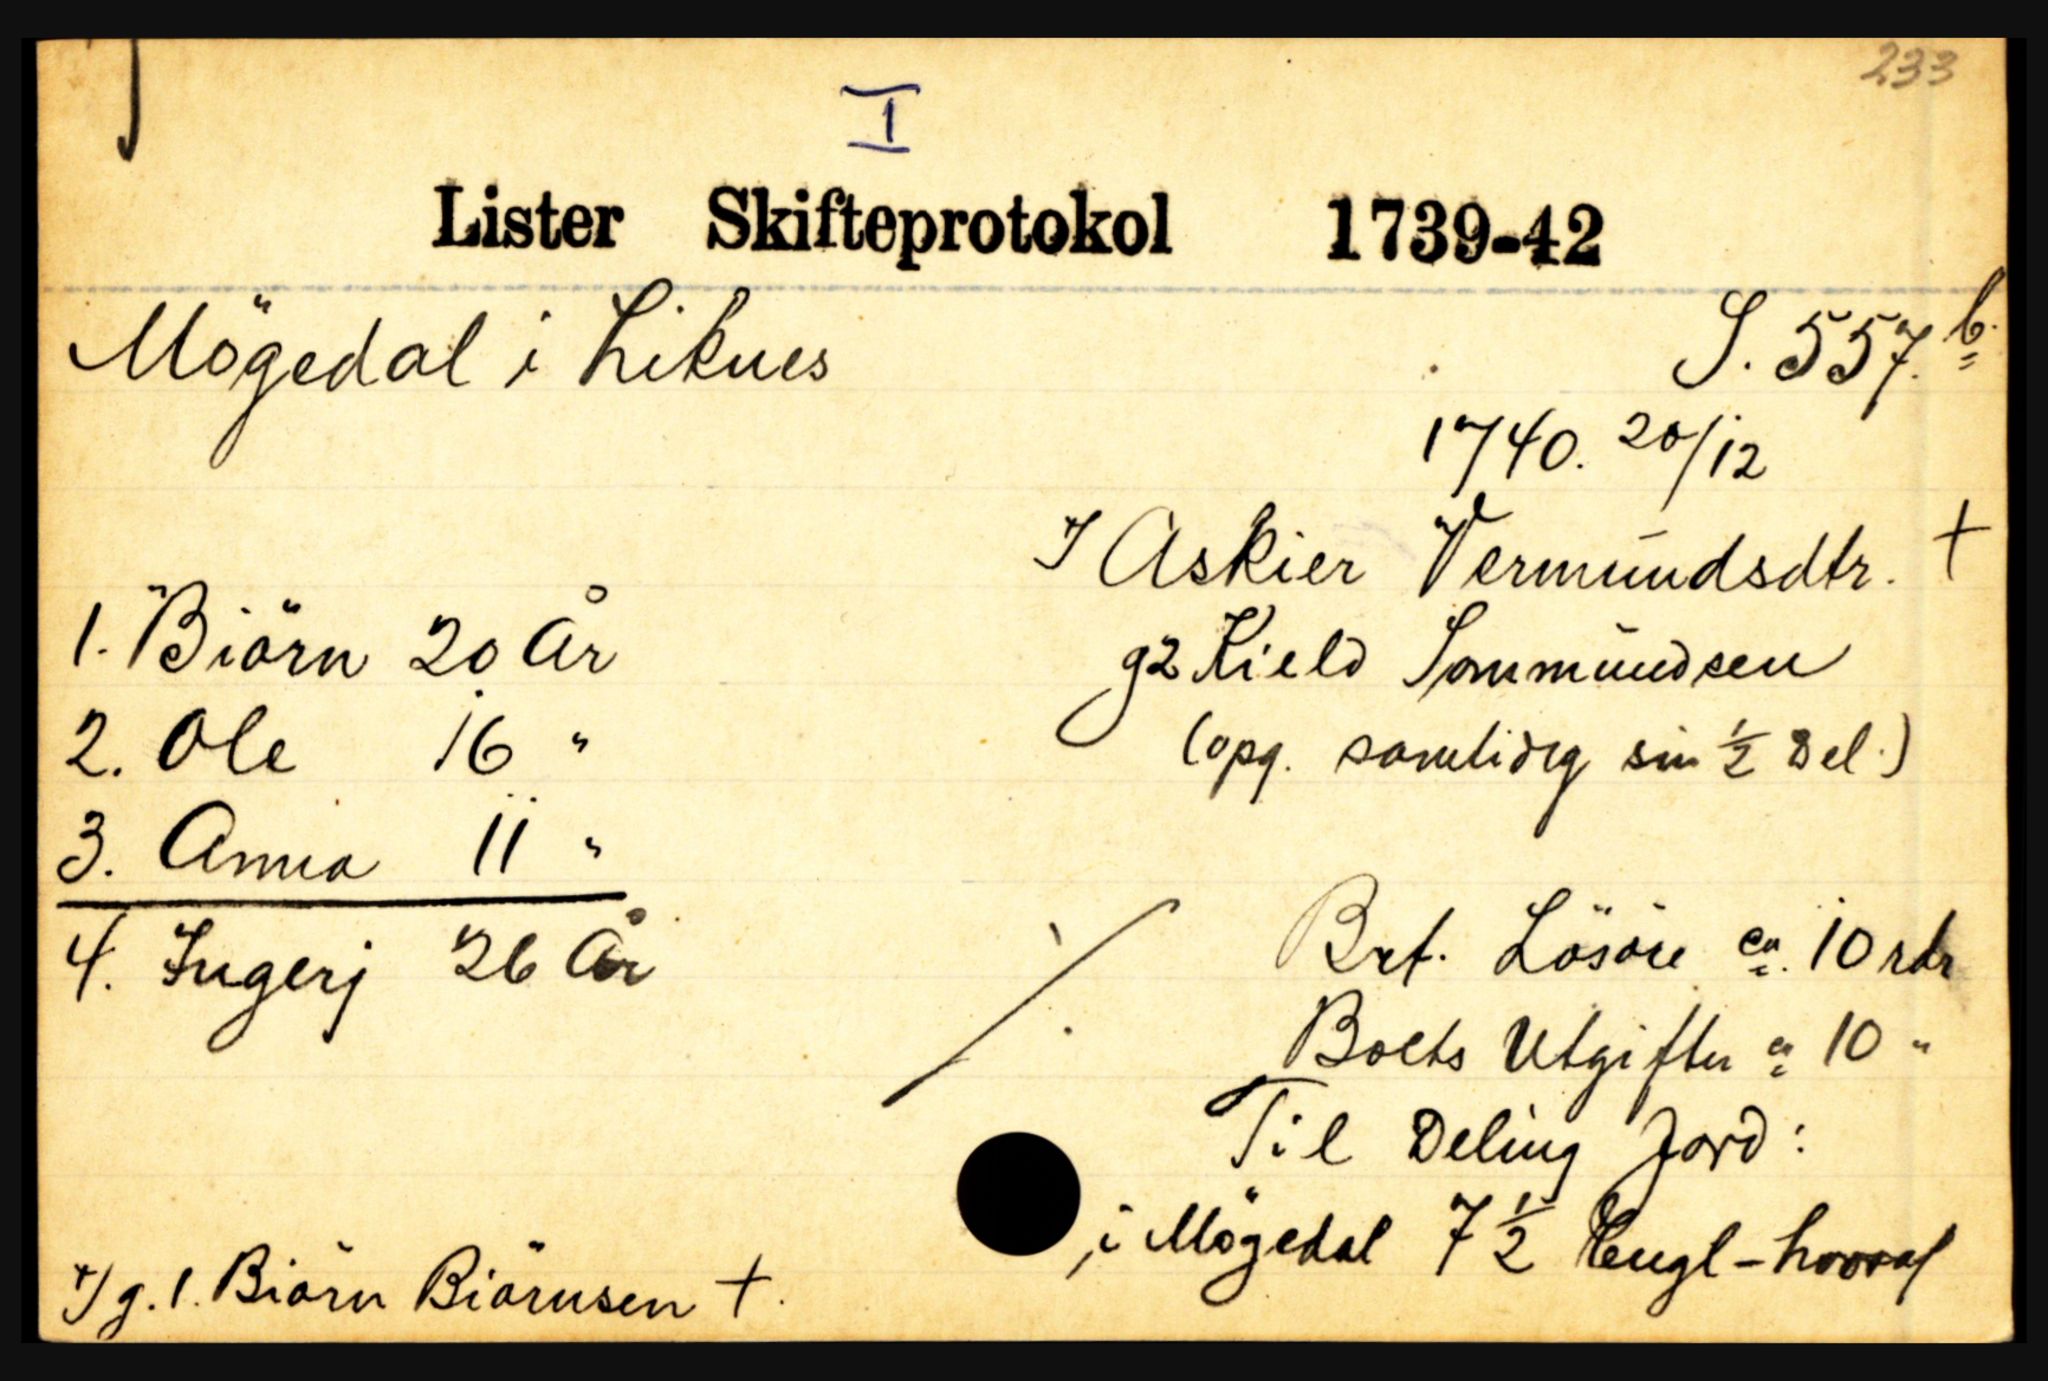 233
I
Lister Skifteprotokol 1739-42
Mögedal i Liknes
S. 557. b.
1740. 20/12
x/ Askier Vermundsdtr. +
g2 Kield Sommundsen
(opg. samtidig sin 1/2 Del.)
1. Biörn 20 År
2. Ole 16 "
3. Anna 11 "
4. Ingerj 26 År
Brt. Lösöre ca. 10 rdr
Boets Utgifter ca 10 "
Til Deling Jord:
i Mögedal 7 1/2 Engl - hvoraf
x/ g. 1. Biörn Biörnsen +.